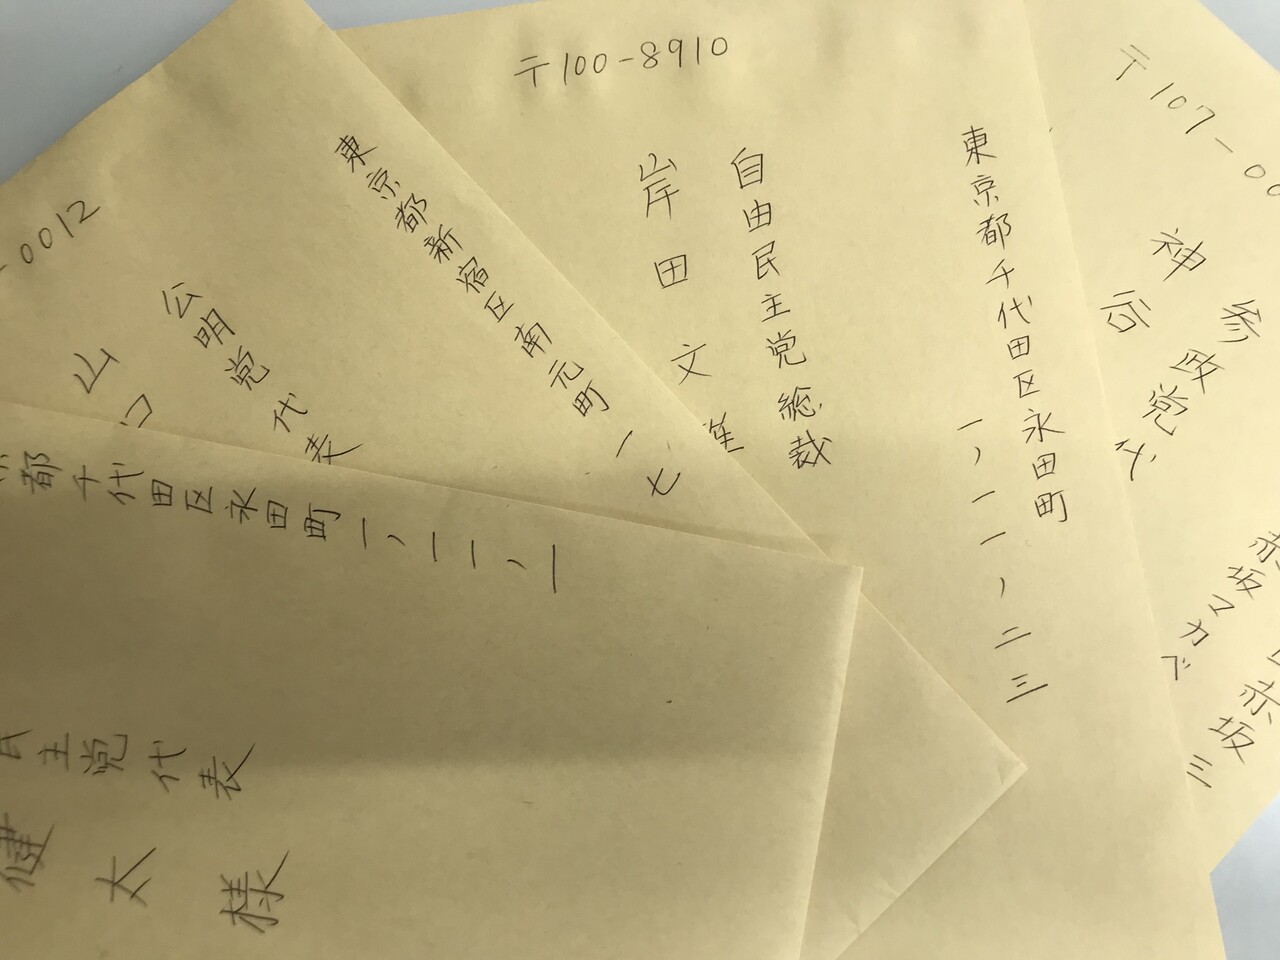 〒107-00
参政党代
神谷
赤坂三
赤坂マカベ
〒100-8910
東京都千代田区永田町
一、一一、二三
自由民主党総裁
岸田文雄
-0012
東京都新宿区南元町
一七
公明党代表
山口
都千代田区永田町一、一一、一
民主党代表
健太様